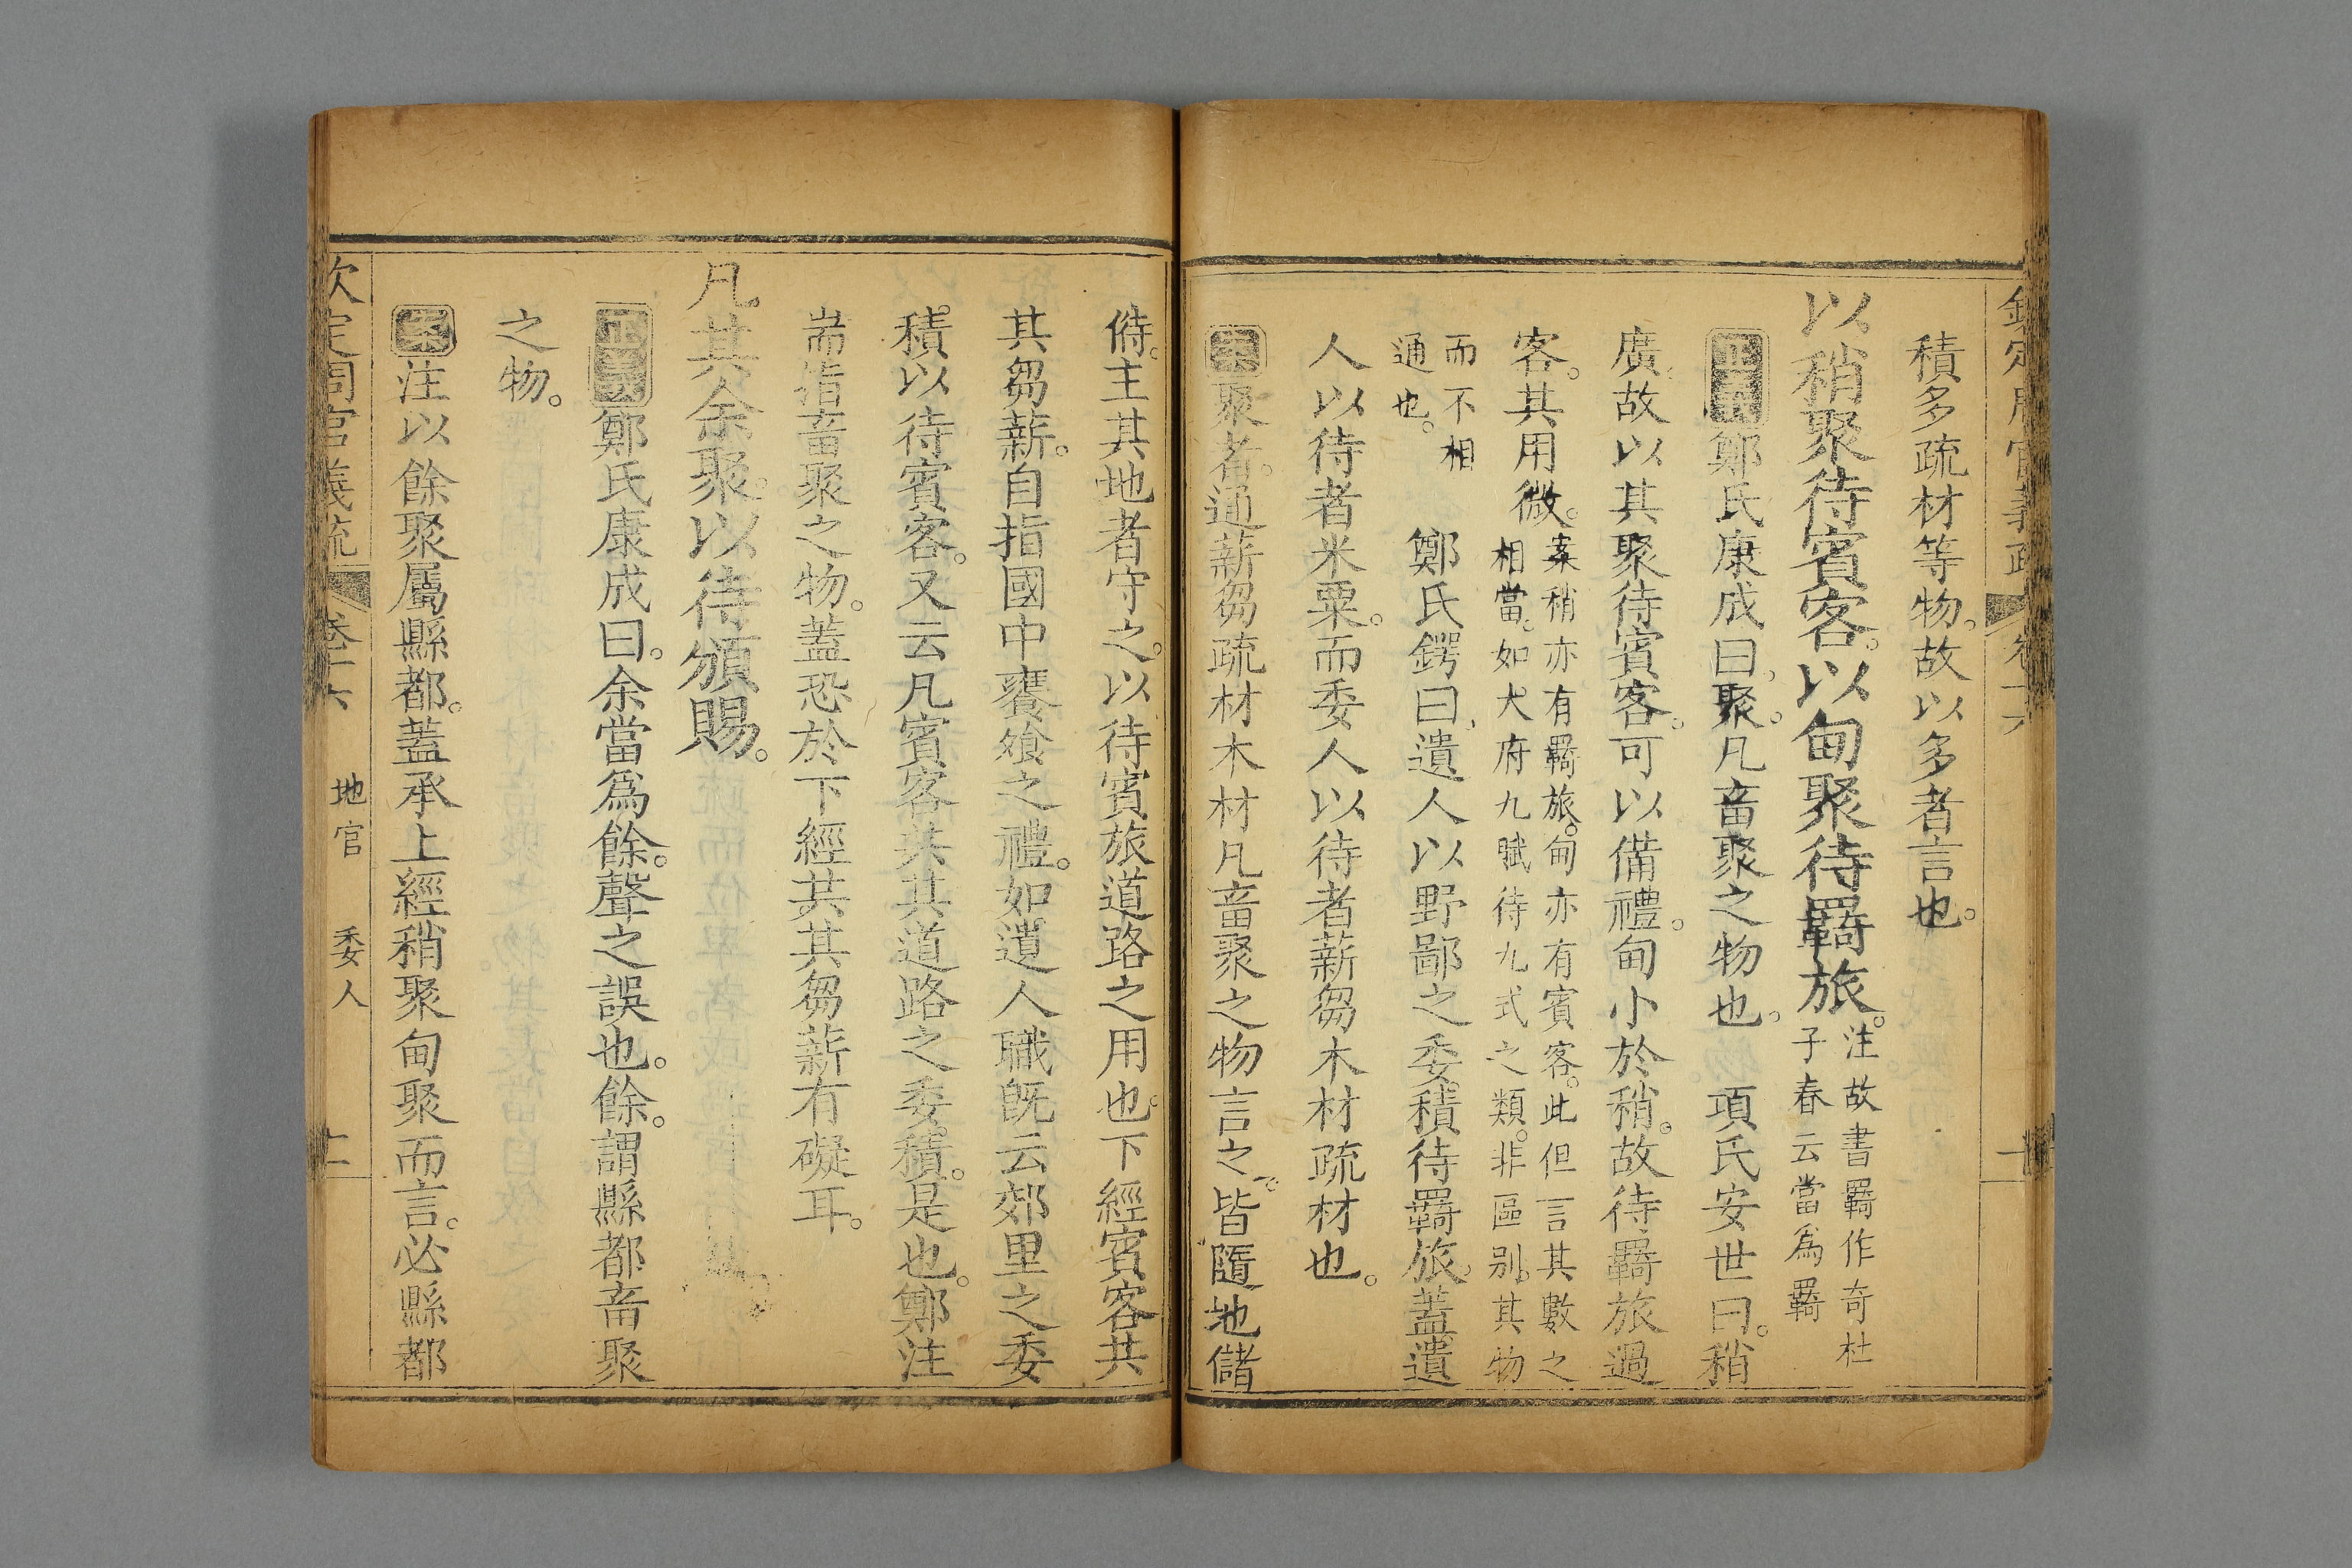 積多疏材等物。故以多者言也。
以稍聚待賓客。以甸聚待羇旅。注故書羇作奇杜
子春云當爲羇
正義鄭氏康成曰。聚。凡畜聚之物也。 項氏安世曰。稍
廣。故以其聚待賓客。可以備禮。甸小於稍。故待羇旅過
客。其用微。案稍亦有羇旅。甸亦有賓客。此但言其數之
相當。如大府九賦待九式之類。非區别其物
而不相
通也。 鄭氏鍔曰。遺人以野鄙之委積待羇旅。蓋遺
人以待者米粟。而委人以待者薪芻木材疏材也。
案聚者。通薪芻疏材木材凡畜聚之物言之。皆隨地儲
偫。主其地者守之。以待賓旅道路之用也。下經賓客共
其芻薪。自指國中饔飧之禮。如遺人職既云郊里之委
積。以待賓客。又云凡賓客共其道路之委積。是也。鄭注
耑指畜聚之物。蓋恐於下經共其芻薪有礙耳。
凡其余聚。以待頒賜。
正義鄭氏康成曰。余當爲餘。聲之誤也。餘。謂縣都畜聚
之物。
案注以餘聚屬縣都。蓋承上經稍聚甸聚而言。必縣都
欽定周官義疏 卷十六 地官 委人